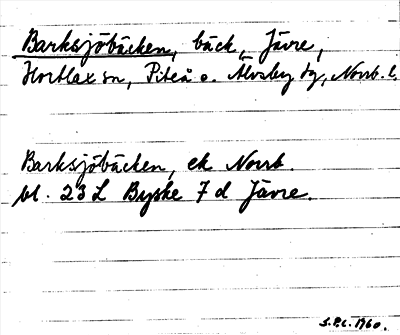 Barksjöbäcken, bäck, Jävre,
Hortlax sn, Piteå o. Älvsby tg, Norrb. l.
Barksjöbäcken, ek Norrb.
bl. 23 L Byske 7 d Jävre.
S.P.C. 1960.